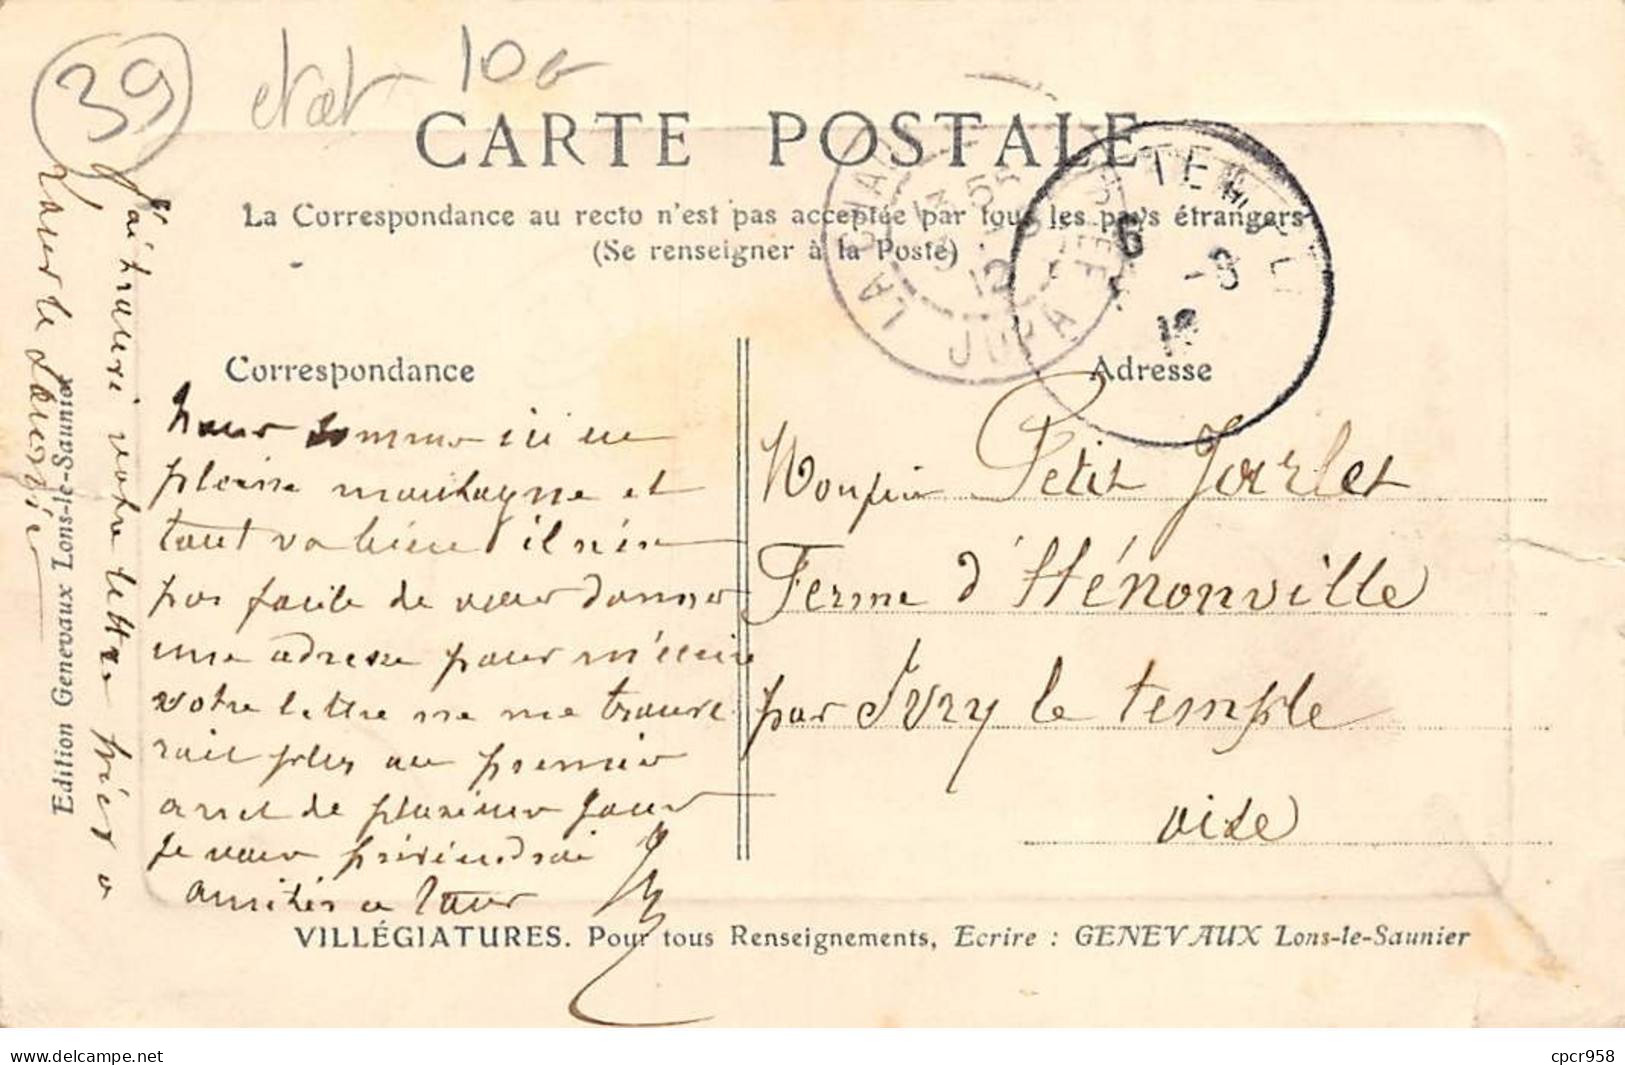 39
état 10e
CARTE POSTALE
La Correspondance au recto n'est pas acceptée par tous les pays étrangers
(Se renseigner à la Poste)
LA CHAUX
JURA
13 55
12
TEMPLE
6 -8
12
Correspondance
Adresse
nous sommes ici en
pleine montagne et
tout va bien il n'es
pas facile de vous donner
une adresse pour m'écrire
votre lettre ne me trouve
rait plus au premier
arret de plusieur jour
je vous préviendrai
amitiés a tous
J'ai trouvé votre lettre hier a
Lons le Saunier
Monsieur Petit Jarlet
Ferme d'Hénonville
par Ivry le temple
oise
Edition Genevaux Lons-le-Saunier
VILLÉGIATURES. Pour tous Renseignements, Ecrire : GENEVAUX Lons-le-Saunier
delcampe.net
cpcr958